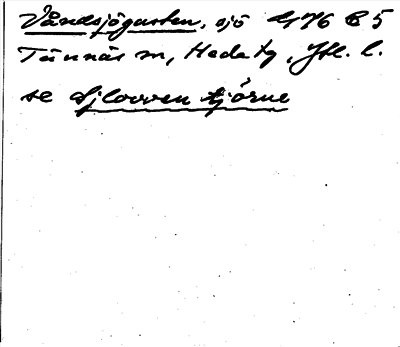 Våndsjögusten, sjö 476 C 5
Tännäs sn, Hede tg, Jtl. l.
se Sjlovven tjärne